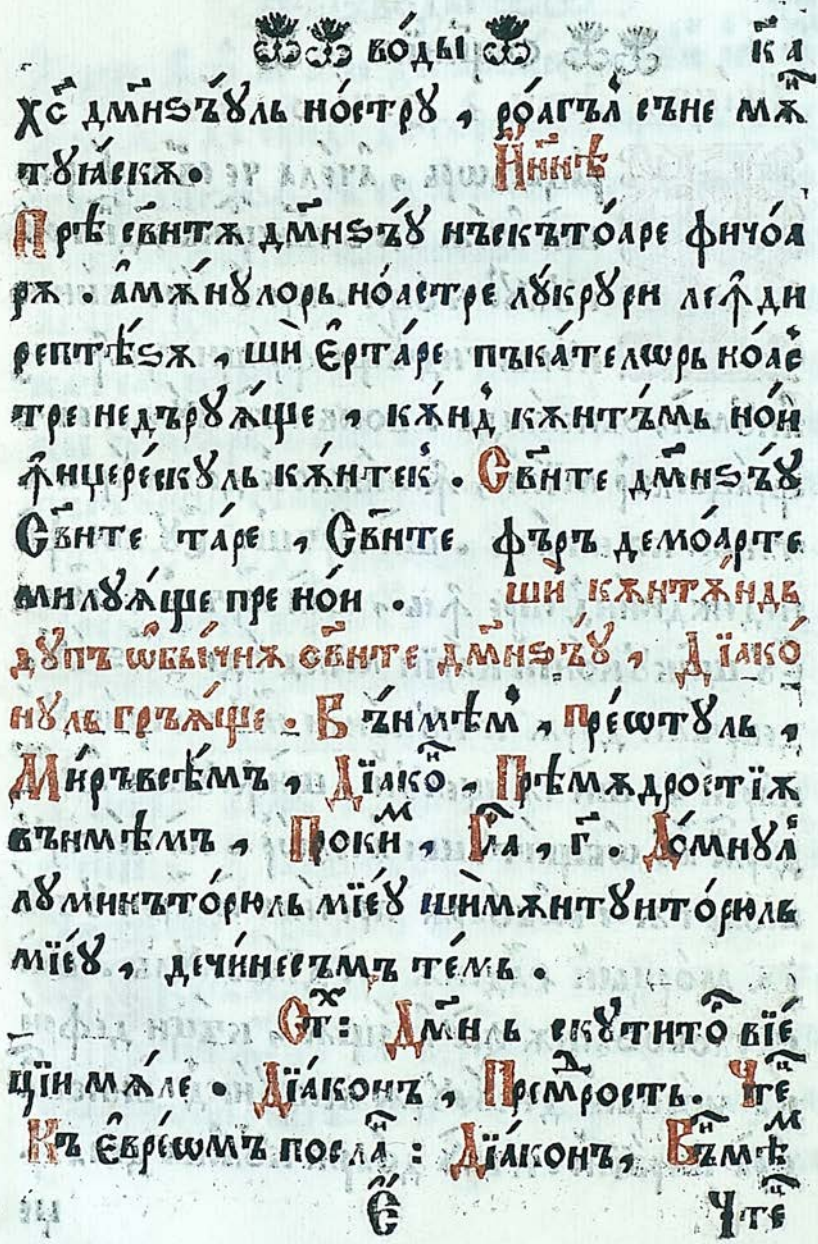 во́ды к҃а
хс҃ дм҃нѕъ́ꙋль но́стрꙋ , ро́агъл съне мѫн҇
тꙋꙗ́скѫ.   Н҃ннѣ
Прѣ св҃нтѫ дм҃нѕъ́ꙋ нъскъто́аре фичо́а
рѫ . а҆мѫ́нꙋлорь но́астре лꙋ́крꙋри леꙟ҆ди
рептѣ́ѕѫ , шѝ є҆рта́ре пъка́телѡрь но́ас
тре недърꙋѧ́ще , кѫ́нд кѫнтъ́мь но́и
ꙟ҆нцере́скꙋль кѫ́нтек . Св҃нте дм҃нѕъ́ꙋ
Св҃нте та́ре , Св҃нте фъръ демо́арте
милꙋѧ́ще пре но́и . шѝ кѫнтѫ́ндь
дꙋ́пъ ѡ҆бы́чнѫ св҃нте дм҃нѕъ́ꙋ , Дїако́
нꙋль гръѧ́ще . В ъ́нмѣм , пре́ѡтꙋль ,
Ми́ръвсѣ́мъ , Дїако́н҇ , Прѣмѫдростїѫ
вънмѣмъ , Прокиⷨ , Гл҃а , г҃ . До́мнꙋл
лꙋминъто́рюль мїе́ꙋ шѝмѫнтꙋито́рюль
мїе́ꙋ , дечи́несъмъ те́мь .
Стⷯ: Дм҃нь скꙋтито́р҇ вїе́
цїи мѧ́ле . Дїа́конъ , Премⷣрость. Чте҇ц
Къ є҆вре́ѡмъ посла҇н : Дїа́конъ, Въ҇нмѣⷨ
Є҃   Чте҇ц